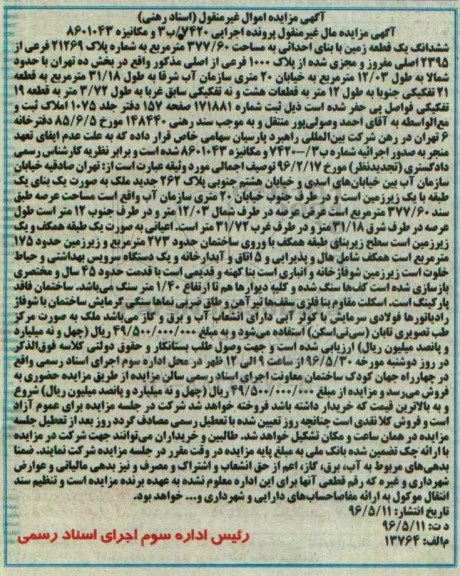 آگهی مزایده اموال غیرمنقول (اسناد رهنی)
آگهی مزایده مال غیرمنقول پرونده اجرایی ۷۴۲۰/ب۳ و مکانیزه ۸۶۰۱۰۴۳
ششدانگ یک قطعه زمین با بنای احداثی به مساحت ۳۷۷/۶۰ مترمربع به شماره پلاک ۲۱۲۶۹ فرعی از
۲۳۹۵ اصلی مفروز و مجزی شده از پلاک ۱۰۰۰ فرعی از اصلی مذکور واقع در بخش ده تهران با حدود
شمالا به طول ۱۲/۰۳ مترمربع به خیابان ۲۰ متری سازمان آب شرقا به طول ۳۱/۱۸ متر به قطعه
۲۱ تفکیکی جنوبا به طول ۱۲ متر به قطعات هشت و نه تفکیکی سابق غربا به طول ۳۱/۷۲ متر به قطعه ۱۹
تفکیکی فواصل پی حفر شده است ذیل ثبت شماره ۱۷۱۸۸۱ صفحه ۱۵۷ دفتر جلد ۱۰۷۵ املاک ثبت و
مع‌الواسطه به آقای احمد وصولی‌پور منتقل و به موجب سند رهنی ۱۴۸۴۴۰ مورخ ۸۵/۶/۵ دفترخانه
۶ تهران در رهن شرکت بین‌المللی راهبرد پارسیان سهامی خاص قرار داده که به علت عدم ایفای تعهد
منجر به صدور اجرائیه شماره ب/۳-۷۴۲۰ و مکانیزه ۸۶۰۱۰۴۳ شده است و برابر نظریه کارشناس رسمی
دادگستری (تجدیدنظر) مورخ ۹۶/۲/۱۷ توصیف اجمالی مورد وثیقه عبارت است از: تهران صادقیه خیابان
سازمان آب بین خیابان‌های اسدی و خیابان هشتم جنوبی پلاک ۲۶۲ جدید ملک به صورت یک بنای یک
طبقه با یک زیرزمین است و در طرف جنوب خیابان ۲۰ متری سازمان آب واقع است مساحت عرصه طبق
سند ۳۷۷/۶۰ مترمربع است عرض عرصه در طرف شمال ۱۲/۰۳ متر و در طرف جنوب ۱۲ متر است طول
عرصه در طرف شرق ۳۱/۱۸ متر و در طرف غرب ۳۱/۷۲ متر است. اعیانی به صورت یک طبقه همکف و یک
زیرزمین است سطح زیربنای طبقه همکف با ورودی ساختمان حدود ۲۷۳ مترمربع و زیرزمین حدود ۱۷۵
مترمربع است همکف شامل هال و پذیرایی و ۵ اتاق و آبدارخانه و یک دستگاه سرویس بهداشتی و حیاط
خلوت است زیرزمین شوفاژخانه و انباری است بنا کهنه و قدیمی است با قدمت حدود ۴۵ سال و مختصری
بازسازی شده است کف‌ها سنگ شده و کلیه دیوارها هم تا ارتفاع ۱/۴۰ متر سنگ می‌باشد. ساختمان فاقد
پارکینگ است. اسکلت مقاوم بنا فلزی سقف‌ها تیرآهن و طاق ضربی نماها سنگی گرمایش ساختمان با شوفاژ
رادیاتورها فولادی سرمایش با کولر آبی دارای انشعاب آب و برق و گاز می‌باشد ملک به صورت مرکز
طب تصویری تابان (سی‌تی‌اسکن) استفاده می‌شود و به مبلغ ۴۹/۵۰۰/۰۰۰/۰۰۰ ریال (چهل و نه میلیارد
و پانصد میلیون ریال) ارزیابی شده است و جهت وصول طلب بستانکار و حقوق دولتی کلاسه فوق‌الذکر
در روز دوشنبه مورخه ۹۶/۵/۳۰ از ساعت ۹ الی ۱۲ ظهر در محل اداره سوم اجرای اسناد رسمی واقع
در چهارراه جهان کودک ساختمان معاونت اجرای اسناد رسمی سالن مزایده از طریق مزایده حضوری به
فروش می‌رسد و مزایده از مبلغ ۴۹/۵۰۰/۰۰۰/۰۰۰ ریال (چهل و نه میلیارد و پانصد میلیون ریال) شروع
و به بالاترین قیمت که خریدار داشته باشد فروخته خواهد شد شرکت در جلسه مزایده برای عموم آزاد
است و فروش کلا نقدی است چنانچه روز تعیین شده با تعطیل رسمی مصادف گردد روز بعد از تعطیل جلسه
مزایده در همان ساعت و مکان تشکیل خواهد شد. طالبین و خریداران می‌توانند جهت شرکت در مزایده
با ارائه چک تضمین شده بانک ملی به مبلغ پایه مزایده در وقت مقرر در جلسه مزایده شرکت نمایند. ضمنا
بدهی‌های مربوط به آب، برق، گاز، اعم از حق انشعاب و اشتراک و مصرف و نیز بدهی مالیاتی و عوارض
شهرداری و غیره که رقم قطعی آنها برای این اداره معلوم نشده به عهده برنده مزایده است و تنظیم سند
انتقال موکول به ارائه مفاصاحساب‌های دارایی و شهرداری و... خواهد بود.
تاریخ انتشار: ۹۶/۵/۱۱
د ت: ۹۶/۵/۱۱
م‌الف: ۱۳۷۶۴
رئیس اداره سوم اجرای اسناد رسمی